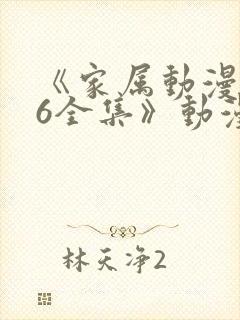 《家属動漫
6全集》動漫
林天净2